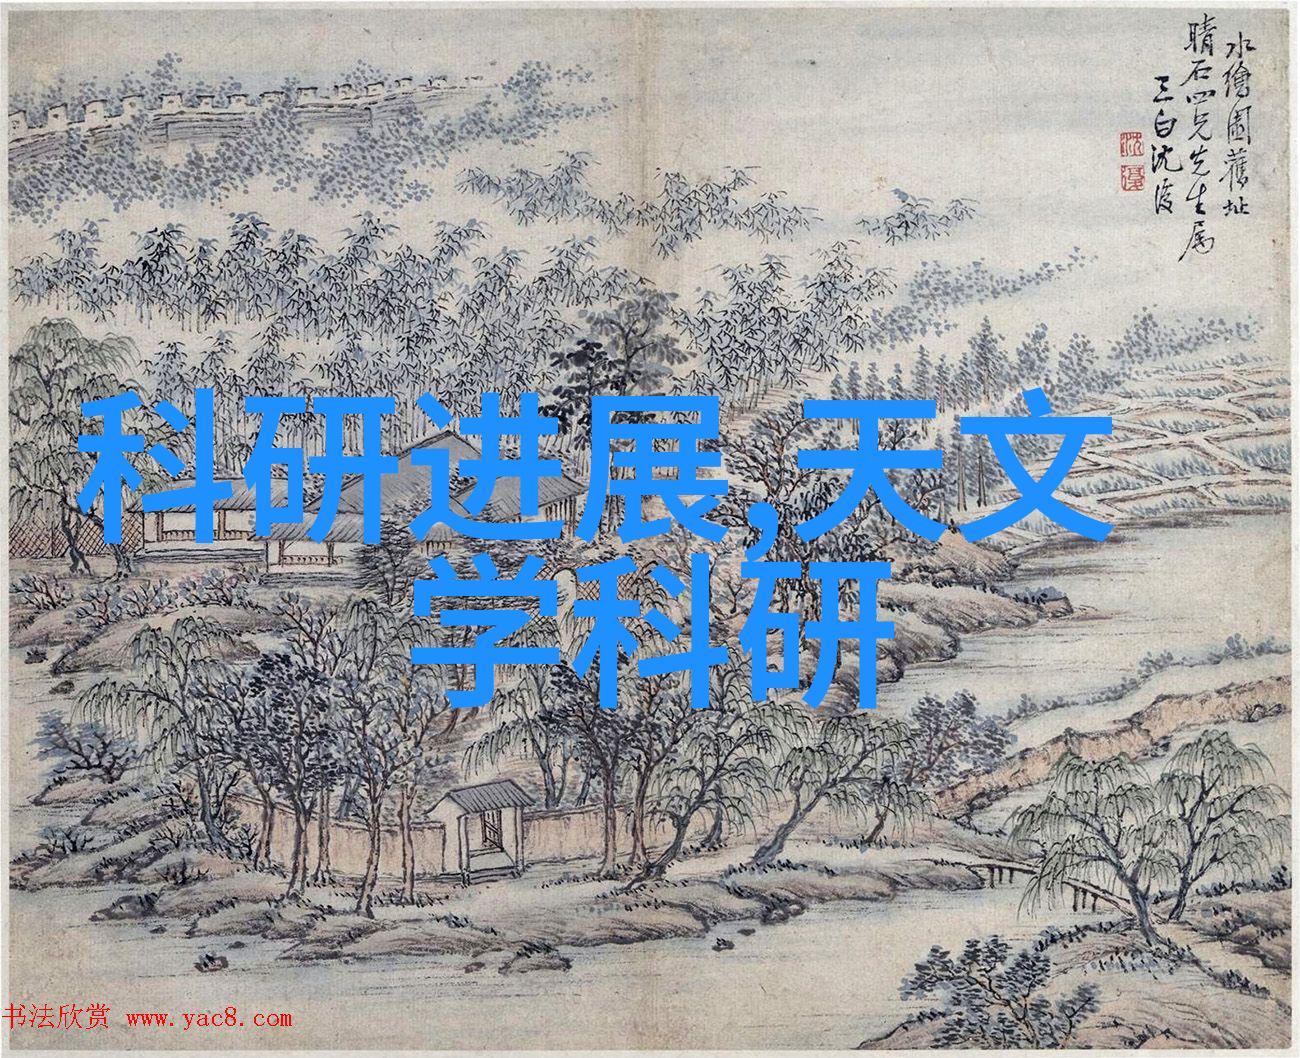 水繪園舊址
晴石四兄先生属
三白沈復
沈
復
科研进展,天文
学科研
书法欣赏 www.yac8.com